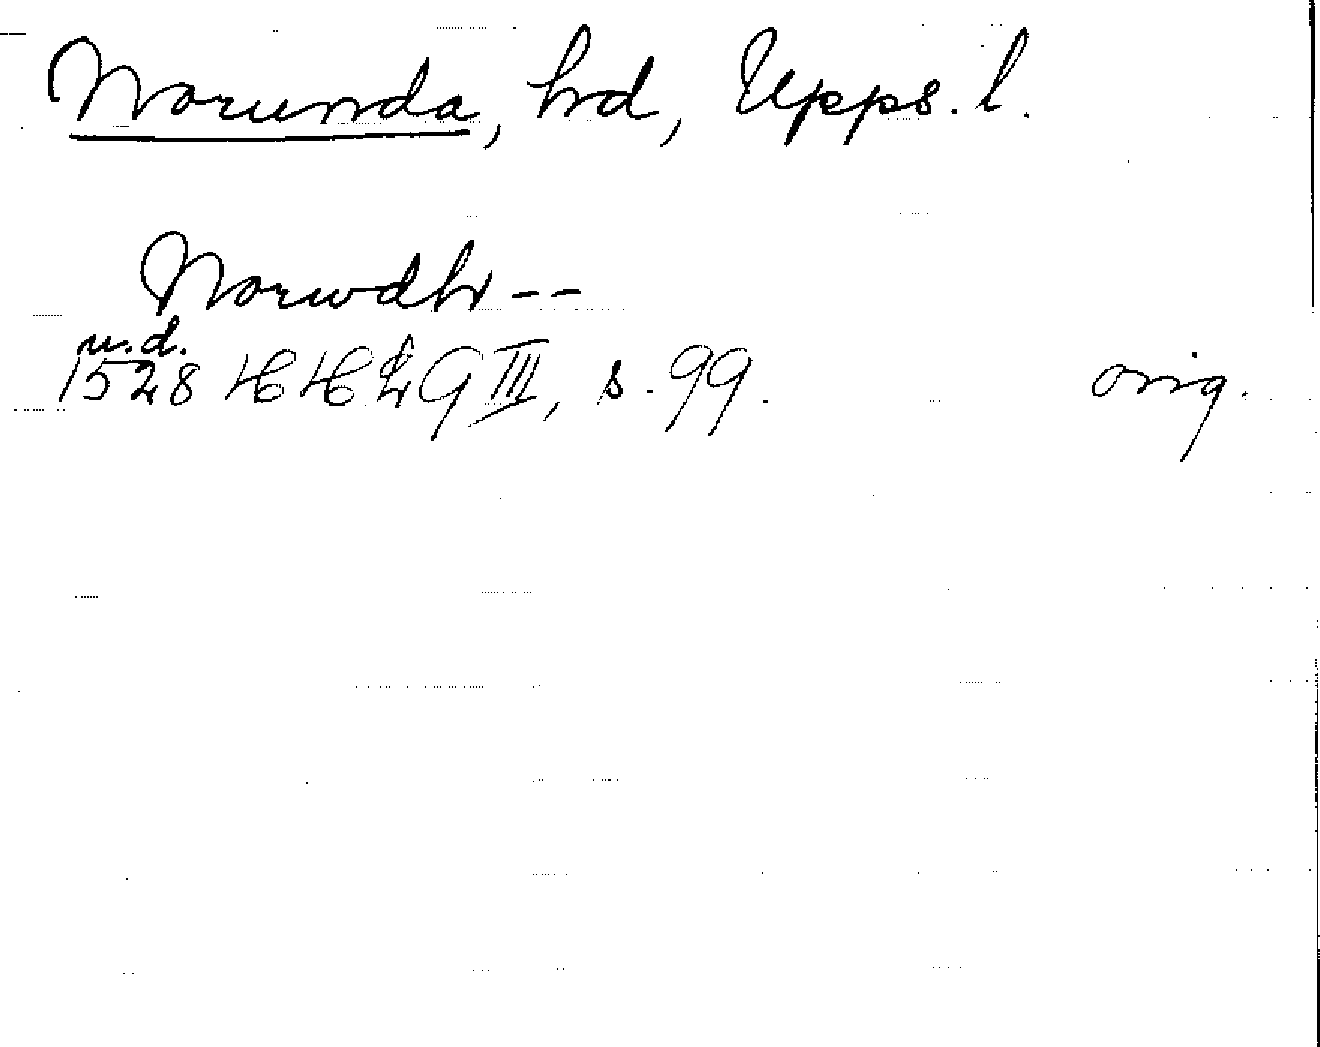 Norunda, hd, Upps. l.
Norwdh--
u.d.
1528 HH 2 G III, s. 99. orig.